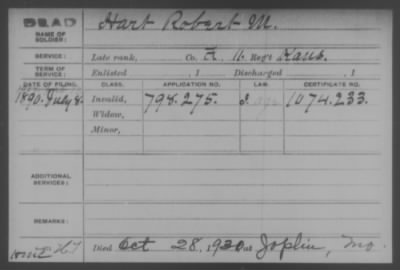 DEAD Hart Robert M.
NAME OF SOLDIER:
SERVICE: Late rank, Co. A, 16 Reg't Kans.
TERM OF SERVICE: Enlisted , 1 Discharged , 1
DATE OF FILING. CLASS. APPLICATION NO. LAW. CERTIFICATE NO.
1890. July 8. Invalid, 798.275. 1074.233.
Widow,
Minor,
ADDITIONAL SERVICES:
REMARKS:
Died Oct 28, 1930 at Joplin, Mo.